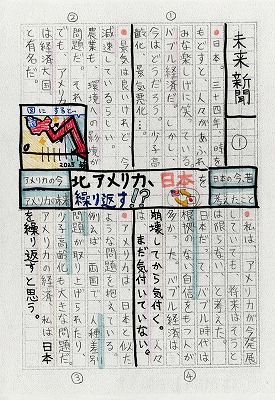 未来新聞
①
①
●日本。三、四十年、時を
もどすと、人々があふれ
バブル経済だ。しかし
今はどうだろう。少子高
齢化、景気悪化…。
②
●景気は良いけれど、今
減速しているらしい。
農業も、環境への影響が
問題だ。それ
でも、アメリカ
は経済大国
と有名だ。
図にすると、
2023
日本の今、昔
考えたこと
北アメリカ、日本を
繰り返す!?
アメリカの今
アメリカの未来
●私は、アメリカが今発展
していても、将来はそうと
は限らない、と考えた。
日本だって、バブル時代は
根拠のない自信をもつ人が
多かった。バブル経済は、
崩壊してから気付く。人々は
まだ気付いていない。
④
●アメリカは、日本と似た
ような問題を抱えている。
例えば、両国で、人種差別
問題が取り上げられたり
少子高齢化も大きな問題だ。
アメリカの経済、私は日本
を繰り返すと思う。
③